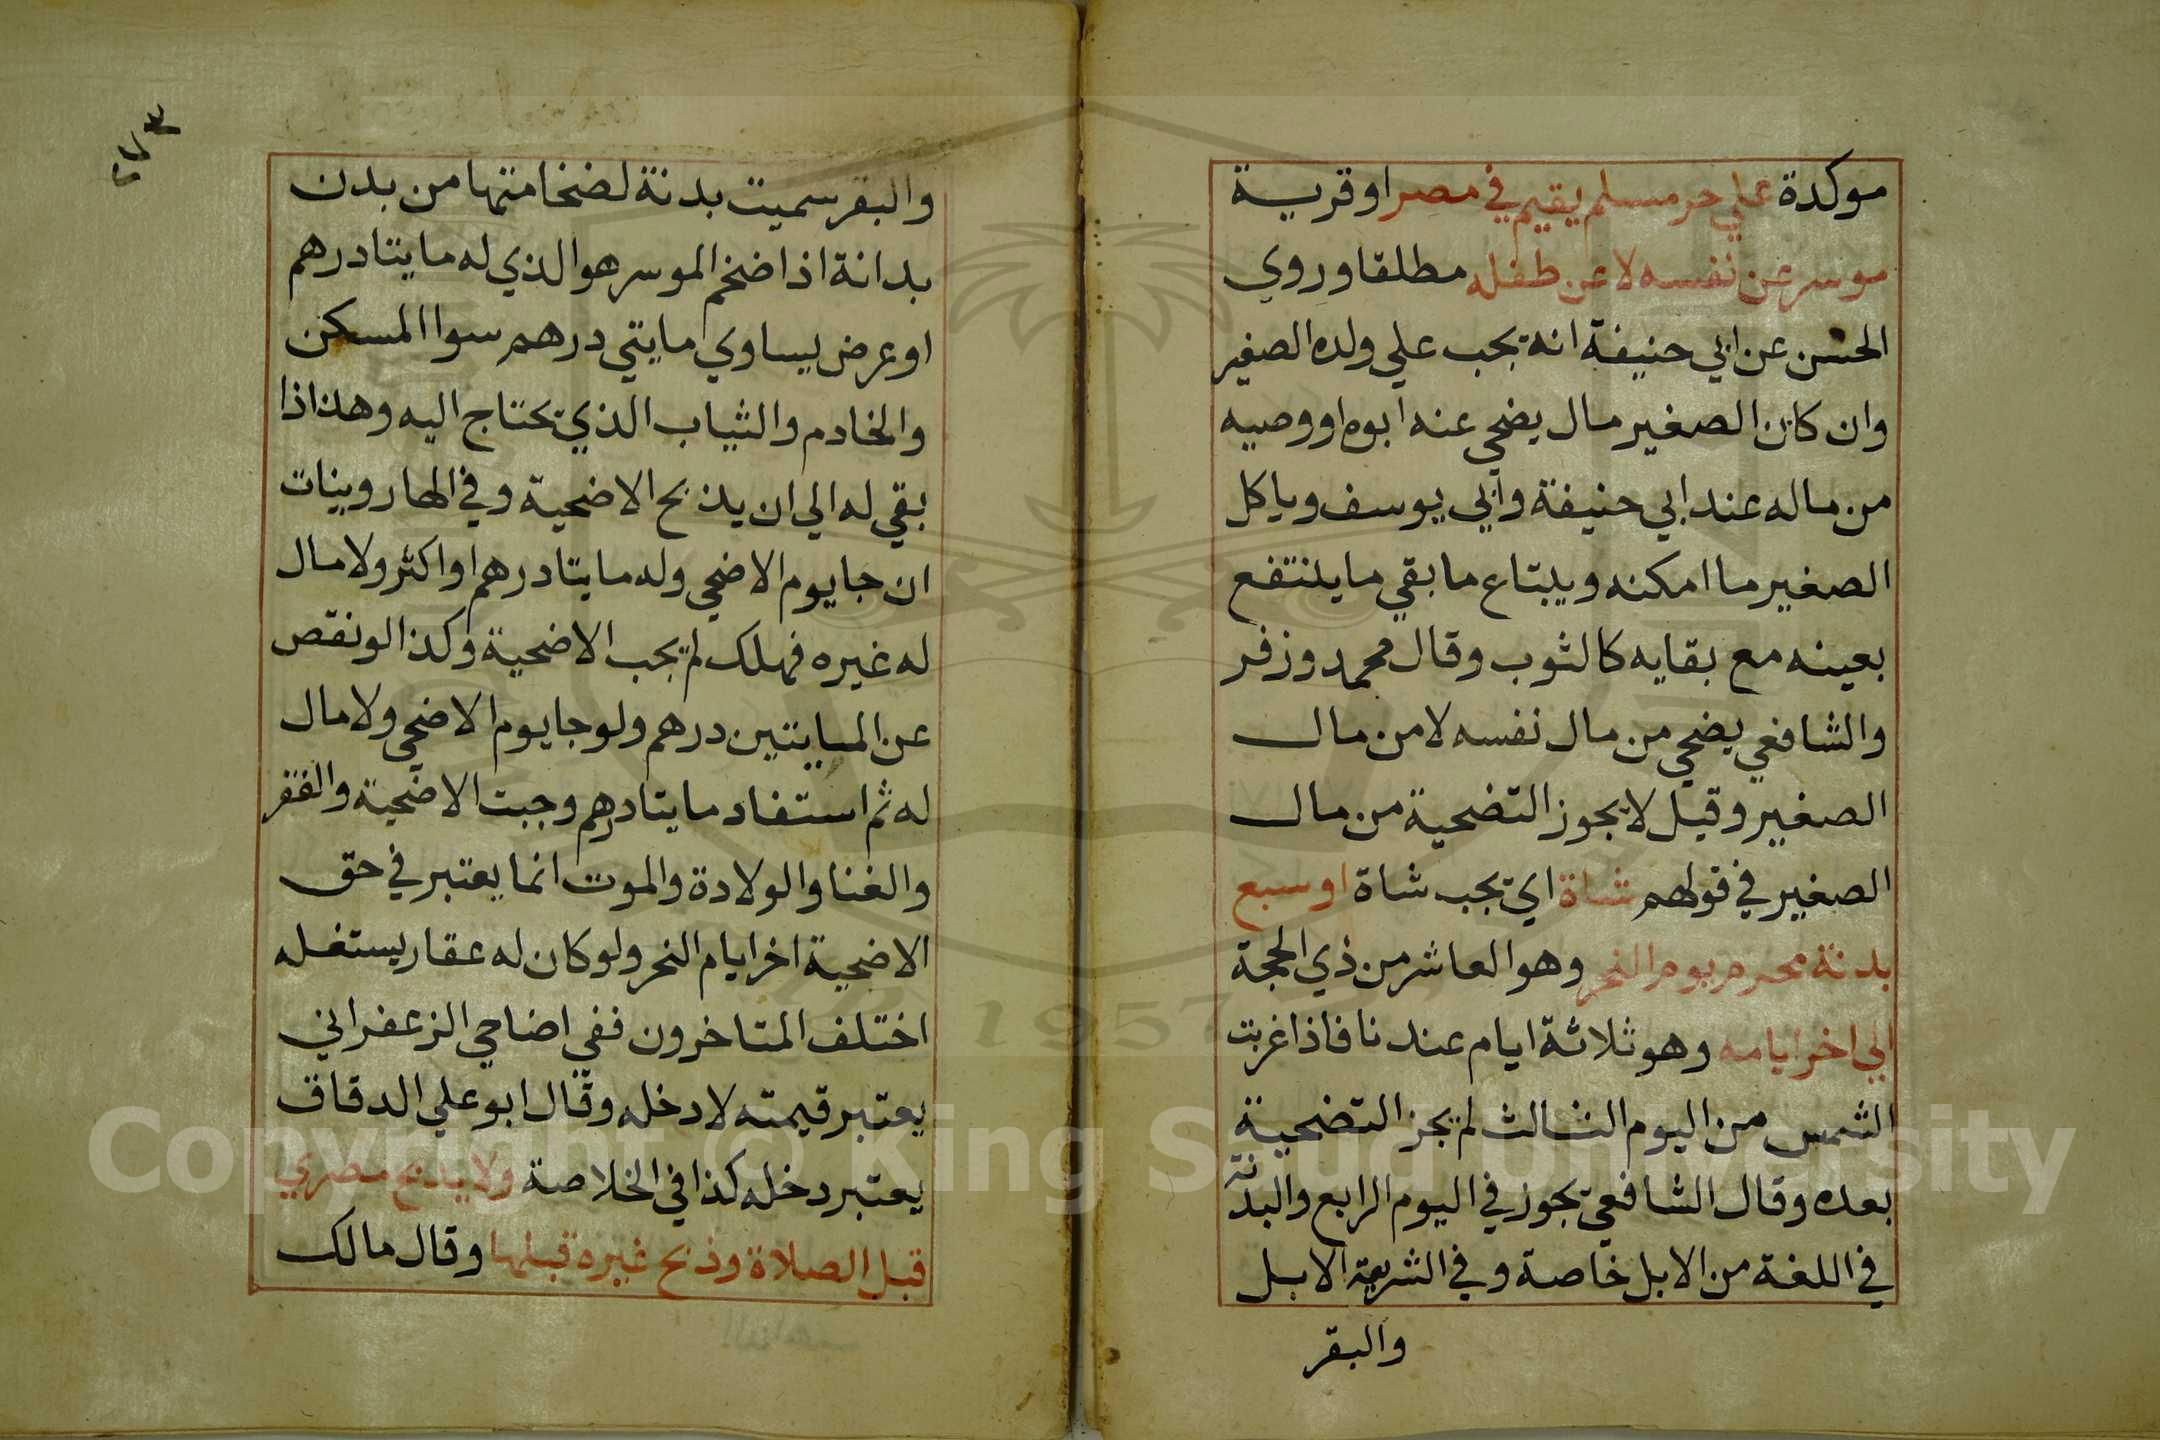 موكدة علي حر مسلم يقيم في مصر او قرية
موسر عن نفسه لا عن طفله مطلقا وروي
الحسن عن ابي حنيفة انه يجب علي ولده الصغير
وان كان الصغير مال يضحي عنه ابوه او وصيه
من ماله عند ابي حنيفة وابي يوسف وياكل
الصغير ما امكنه ويبتاع ما بقي ما ينتفع
بعينه مع بقايه كالثوب وقال محمد وزفر
والشافعي يضحي من مال نفسه لا من مال
الصغير وقيل لا يجوز التضحية من مال
الصغير في قولهم شاة اي يجب شاة او سبع
بدنة محرم يوم النحر وهو العاشر من ذي الحجة
الي اخر ايامه وهو ثلاثة ايام عندنا فاذا غربت
الشمس من اليوم الثالث لم يجز التضحية
بعده وقال الشافعي يجوز في اليوم الرابع والبدنة
في اللغة من الابل خاصة وفي الشريعة الابل
والبقر
٢٧٣
والبقر سميت بدنة لضخامتها من بدن
بدانة اذا ضخم الموسر هو الذي له مايتا درهم
او عرض يساوي مايتي درهم سوا المسكن
والخادم والثياب الذي يحتاج اليه وهذا اذا
بقي له الي ان يذبح الاضحية وفي الهاروينات
ان جا يوم الاضحي وله مايتا درهم او اكثر ولا مال
له غيره فهلك لم يجب الاضحية وكذا لو نقص
عن المايتين درهم ولو جا يوم الاضحي ولا مال
له ثم استفاد مايتا درهم وجبت الاضحية والفقر
والغنا والولادة والموت انما يعتبر في حق
الاضحية اخر ايام النحر ولو كان له عقار يستغله
اختلف المتاخرون ففي اضاحي الزعفراني
يعتبر قيمته لا دخله وقال ابو علي الدقاق
يعتبر دخله كذا في الخلاصة ولا يذبح مصري
قبل الصلاة وذبح غيره قبلها وقال مالك
Copyright © King Saud University
1957